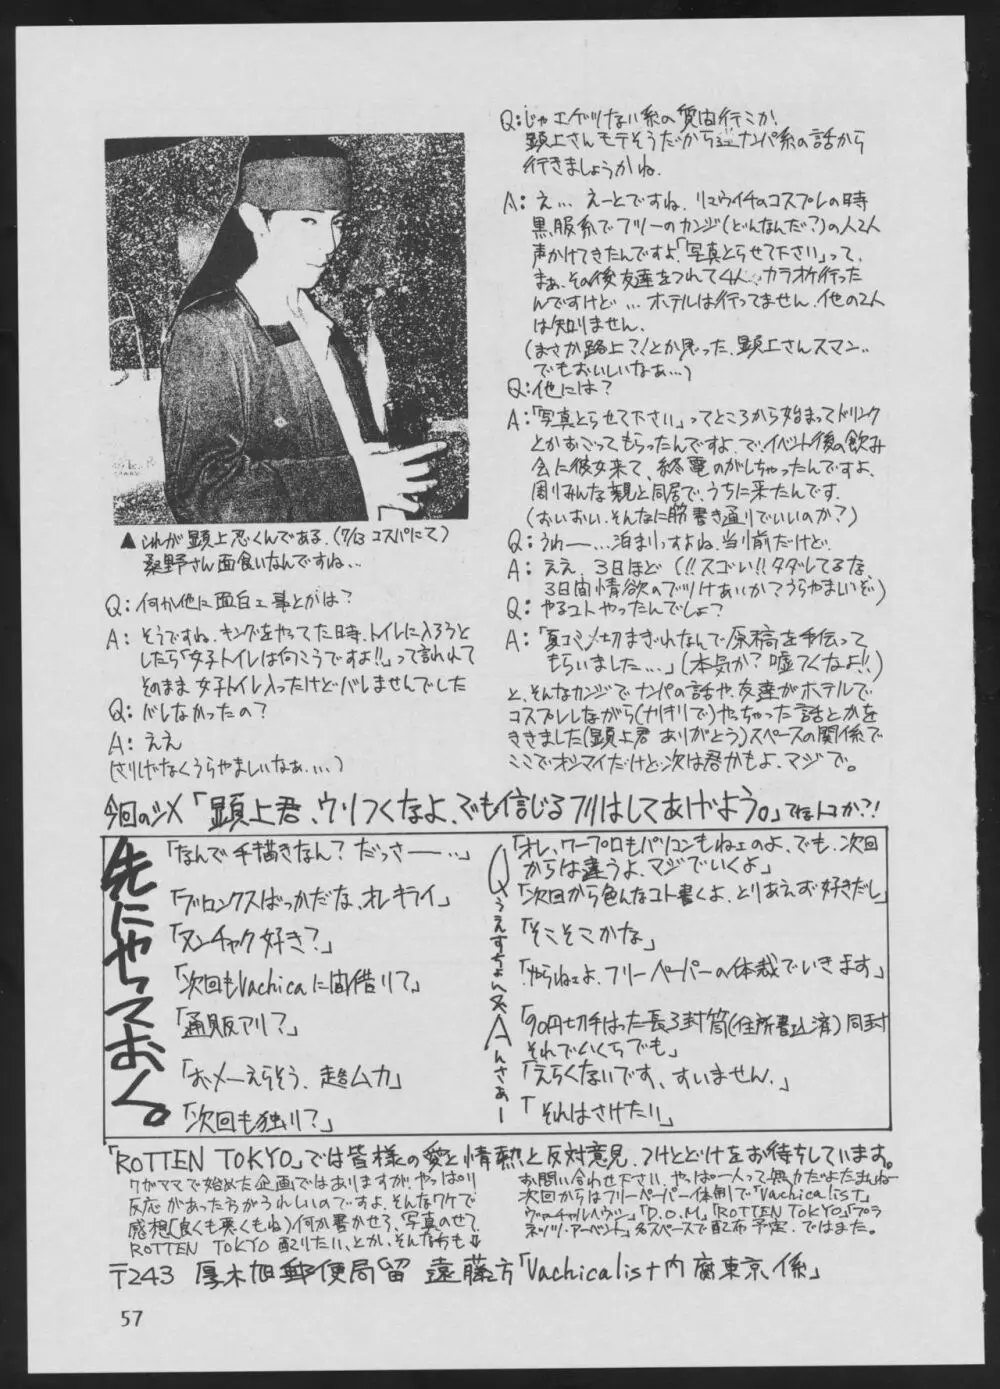 ▲これが顕上忍くんである.(7/13 コスパにて)
桑野さん面食いなんですね…
Q: 何か他に面白エ事とかは?
A: そうですね.キングをやってた時、トイレに入ろうと
したら「女子トイレは向こうですよ!!」って言われて
そのまま女子トイレ入ったけどバレませんでした
Q: バレなかったの?
A: ええ
(さりげなくうらやましいなぁ....)
Q: じゃエゲツない系の質問行こか.
顕上さんモテそうだから逆ナンパ系の話から
行きましょうかね.
A: え… えーとですね、リュウイチのコスプレの時
黒服系でフリーのカンジ(どんなんだ?)の人2人
声かけてきたんですよ「写真とらせて下さい」って.
まぁ、その後友達をつれて4人でカラオケ行った
んですけど … ホテルは行ってません.他の2人
は知りません.
(まさか路上?!とか思った.顕上さんスマン..
でもおいしいなぁ…)
Q: 他には?
A: 「写真とらせて下さい」ってところから始まってドリンク
とかおごってもらったんですよ.で、イベント後の飲み
会に彼女来て、終電のがしちゃったんですよ、
周りみんな親と同居で、うちに来たんです.
(おいおい.そんなに筋書き通りでいいのか?)
Q: うわー…泊まりっすよね.当り前だけど.
A: ええ、3日ほど (!!スゴい!!タダレてるな、
3日間情欲のでつけあいか?うらやまいぞ)
Q: やるコトやったんでしょ?
A: 「夏コミ〆切まぎわなんで原稿を手伝って
もらいました…」(本気か?嘘つくなよ!!)
と、そんなカンジでナンパの話や、友達がホテルで
コスプレしながら(ナリキリで)やっちゃった話とかを
ききました(顕上君 ありがとう)スペースの関係で
ここでオシマイだけど次は君かもよ、マジで。
今回のシメ「顕上君、ウソつくなよ、でも信じるフリはしてあげよう。」てなトコか?!
先にやっておく。
「なんで手描きなん? だっさー…」
「ブロンクスばっかだな、オレキライ」
「ヌンチャク好き?」
「次回もVachicaに間借りて」
「通販アリ?」
「おメーえらそう、超ムカ」
「次回も独り?」
Qうえすちょん&Aんさぁー
「オレ、ワープロもパソコンもねェのよ、でも、次回
からは違うよ、マジでいくよ」
「次回から色んなコト書くよ、とりあえず好きだし」
「そこそこかな」
「やらねェよ、フリーペーパーの体裁でいきます」
「90円切手はった長3封筒(住所書込済)同封
それでいくらでも」
「えらくないです、すいません.」
「それはさけたい」
「ROTTEN TOKYO」では皆様の愛と情熱と反対意見、つけとどけをお待ちしています。
ワガママで始めた企画ではありますが、やっぱり
反応があった方がうれしいのですよ、そんなワケで
感想(良くも悪くもね)何か書かせろ、写真のせて
ROTTEN TOKYO 配りたい、とか、そんな方も⇓
お問い合わせ下さい、やっぱ一人って無力だよなぁ
次回からはフリーペーパー体制で「Vachicalist」
「D.O.M」「ROTTEN TOKYO」「プラ
ネッツ・アーベント」各スペースで配布予定.ではまた。
〒243 厚木旭郵便局留 遠藤方「Vachicalist内 腐東京係」
57